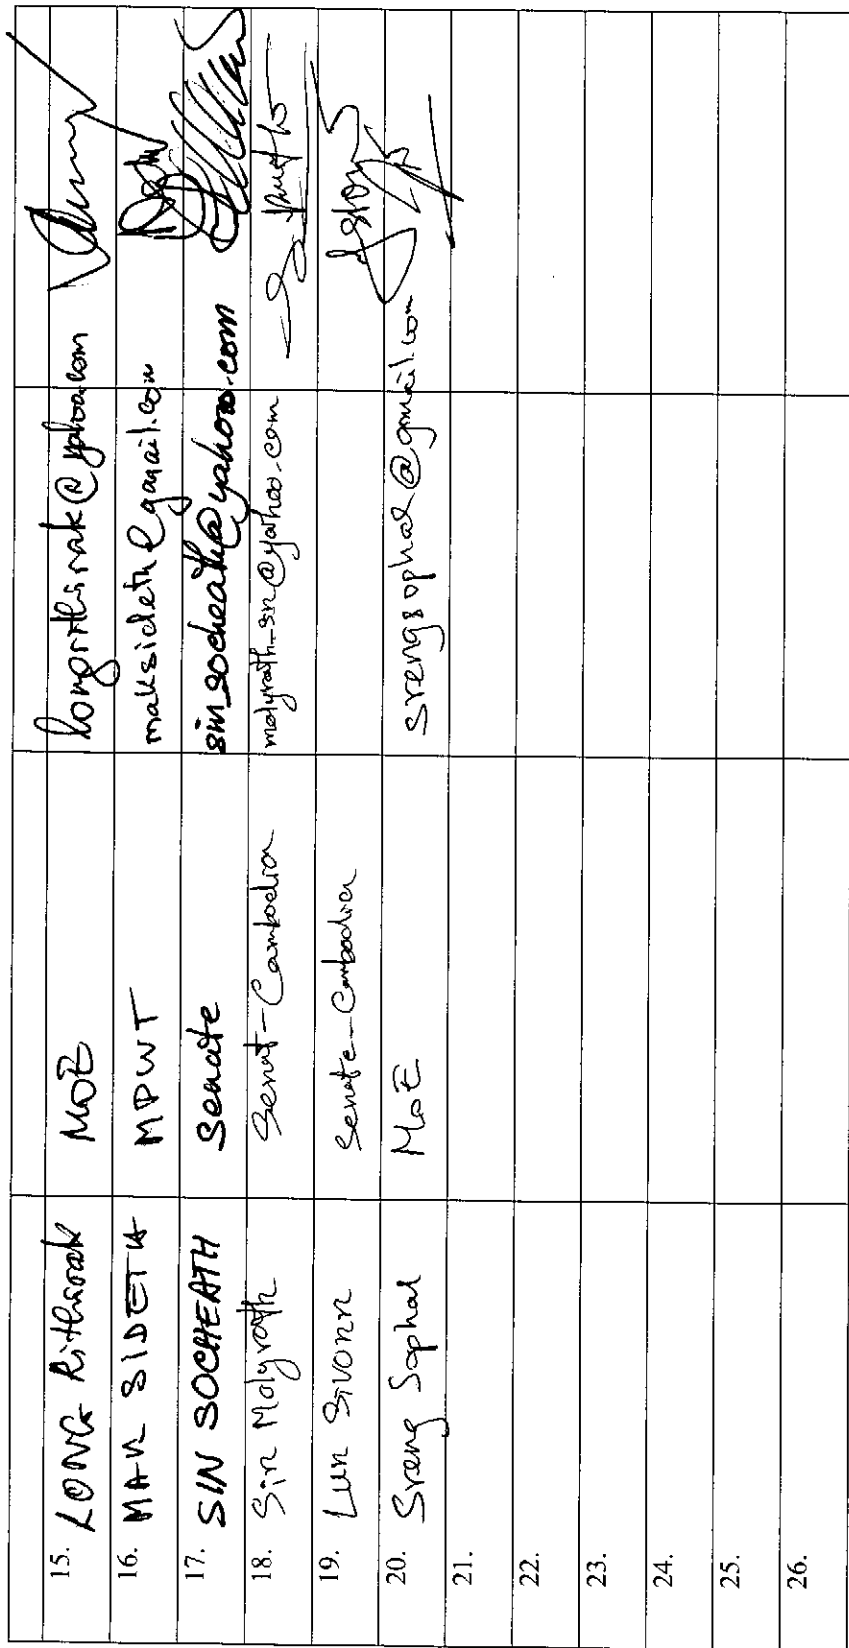 15. LONG Rithirak MoE longrithirak@yahoo.com
16. MAK SIDETH MPWT maksideth@gmail.com
17. SIN SOCHEATH Senate sin_socheath@yahoo.com
18. Sin Molyrath Senat-Cambodia molyrath_sin@yahoo.com
19. Lun Sivonn Senate-Cambodia
20. Sreng Sophal MoE srengsophal@gmail.com
21.
22.
23.
24.
25.
26.